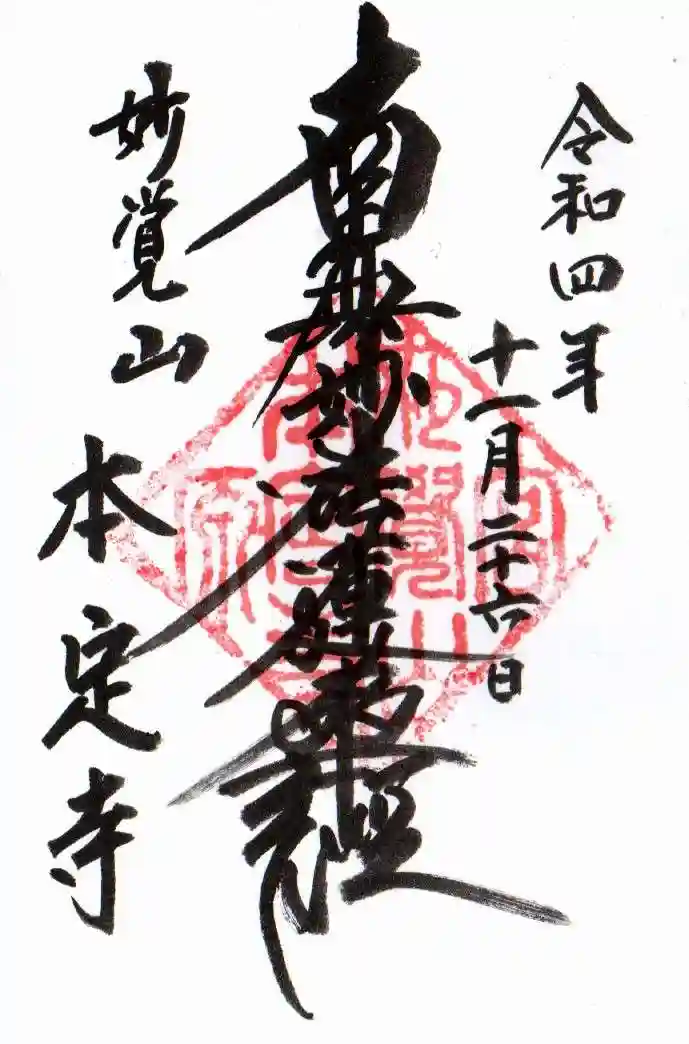 令和四年
十一月二十六日
南無妙法蓮華経
妙覚山
本定寺